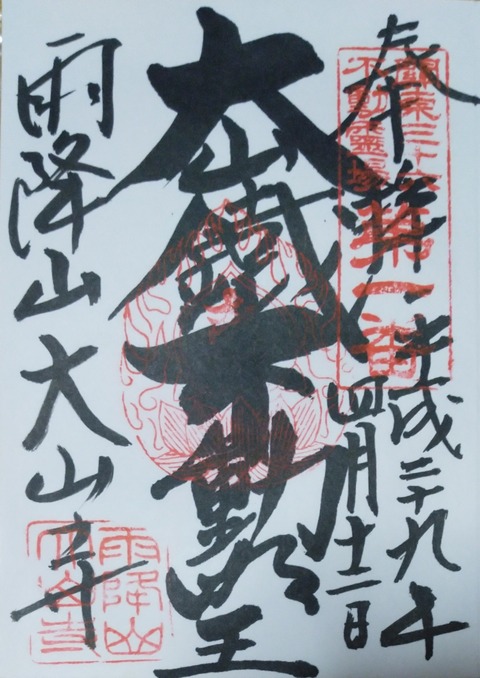 奉拝
平成二十九年
四月十二日
關東三十六
不動靈場
第一番
大山鐵不動尊
雨降山大山寺
雨降山
大山寺